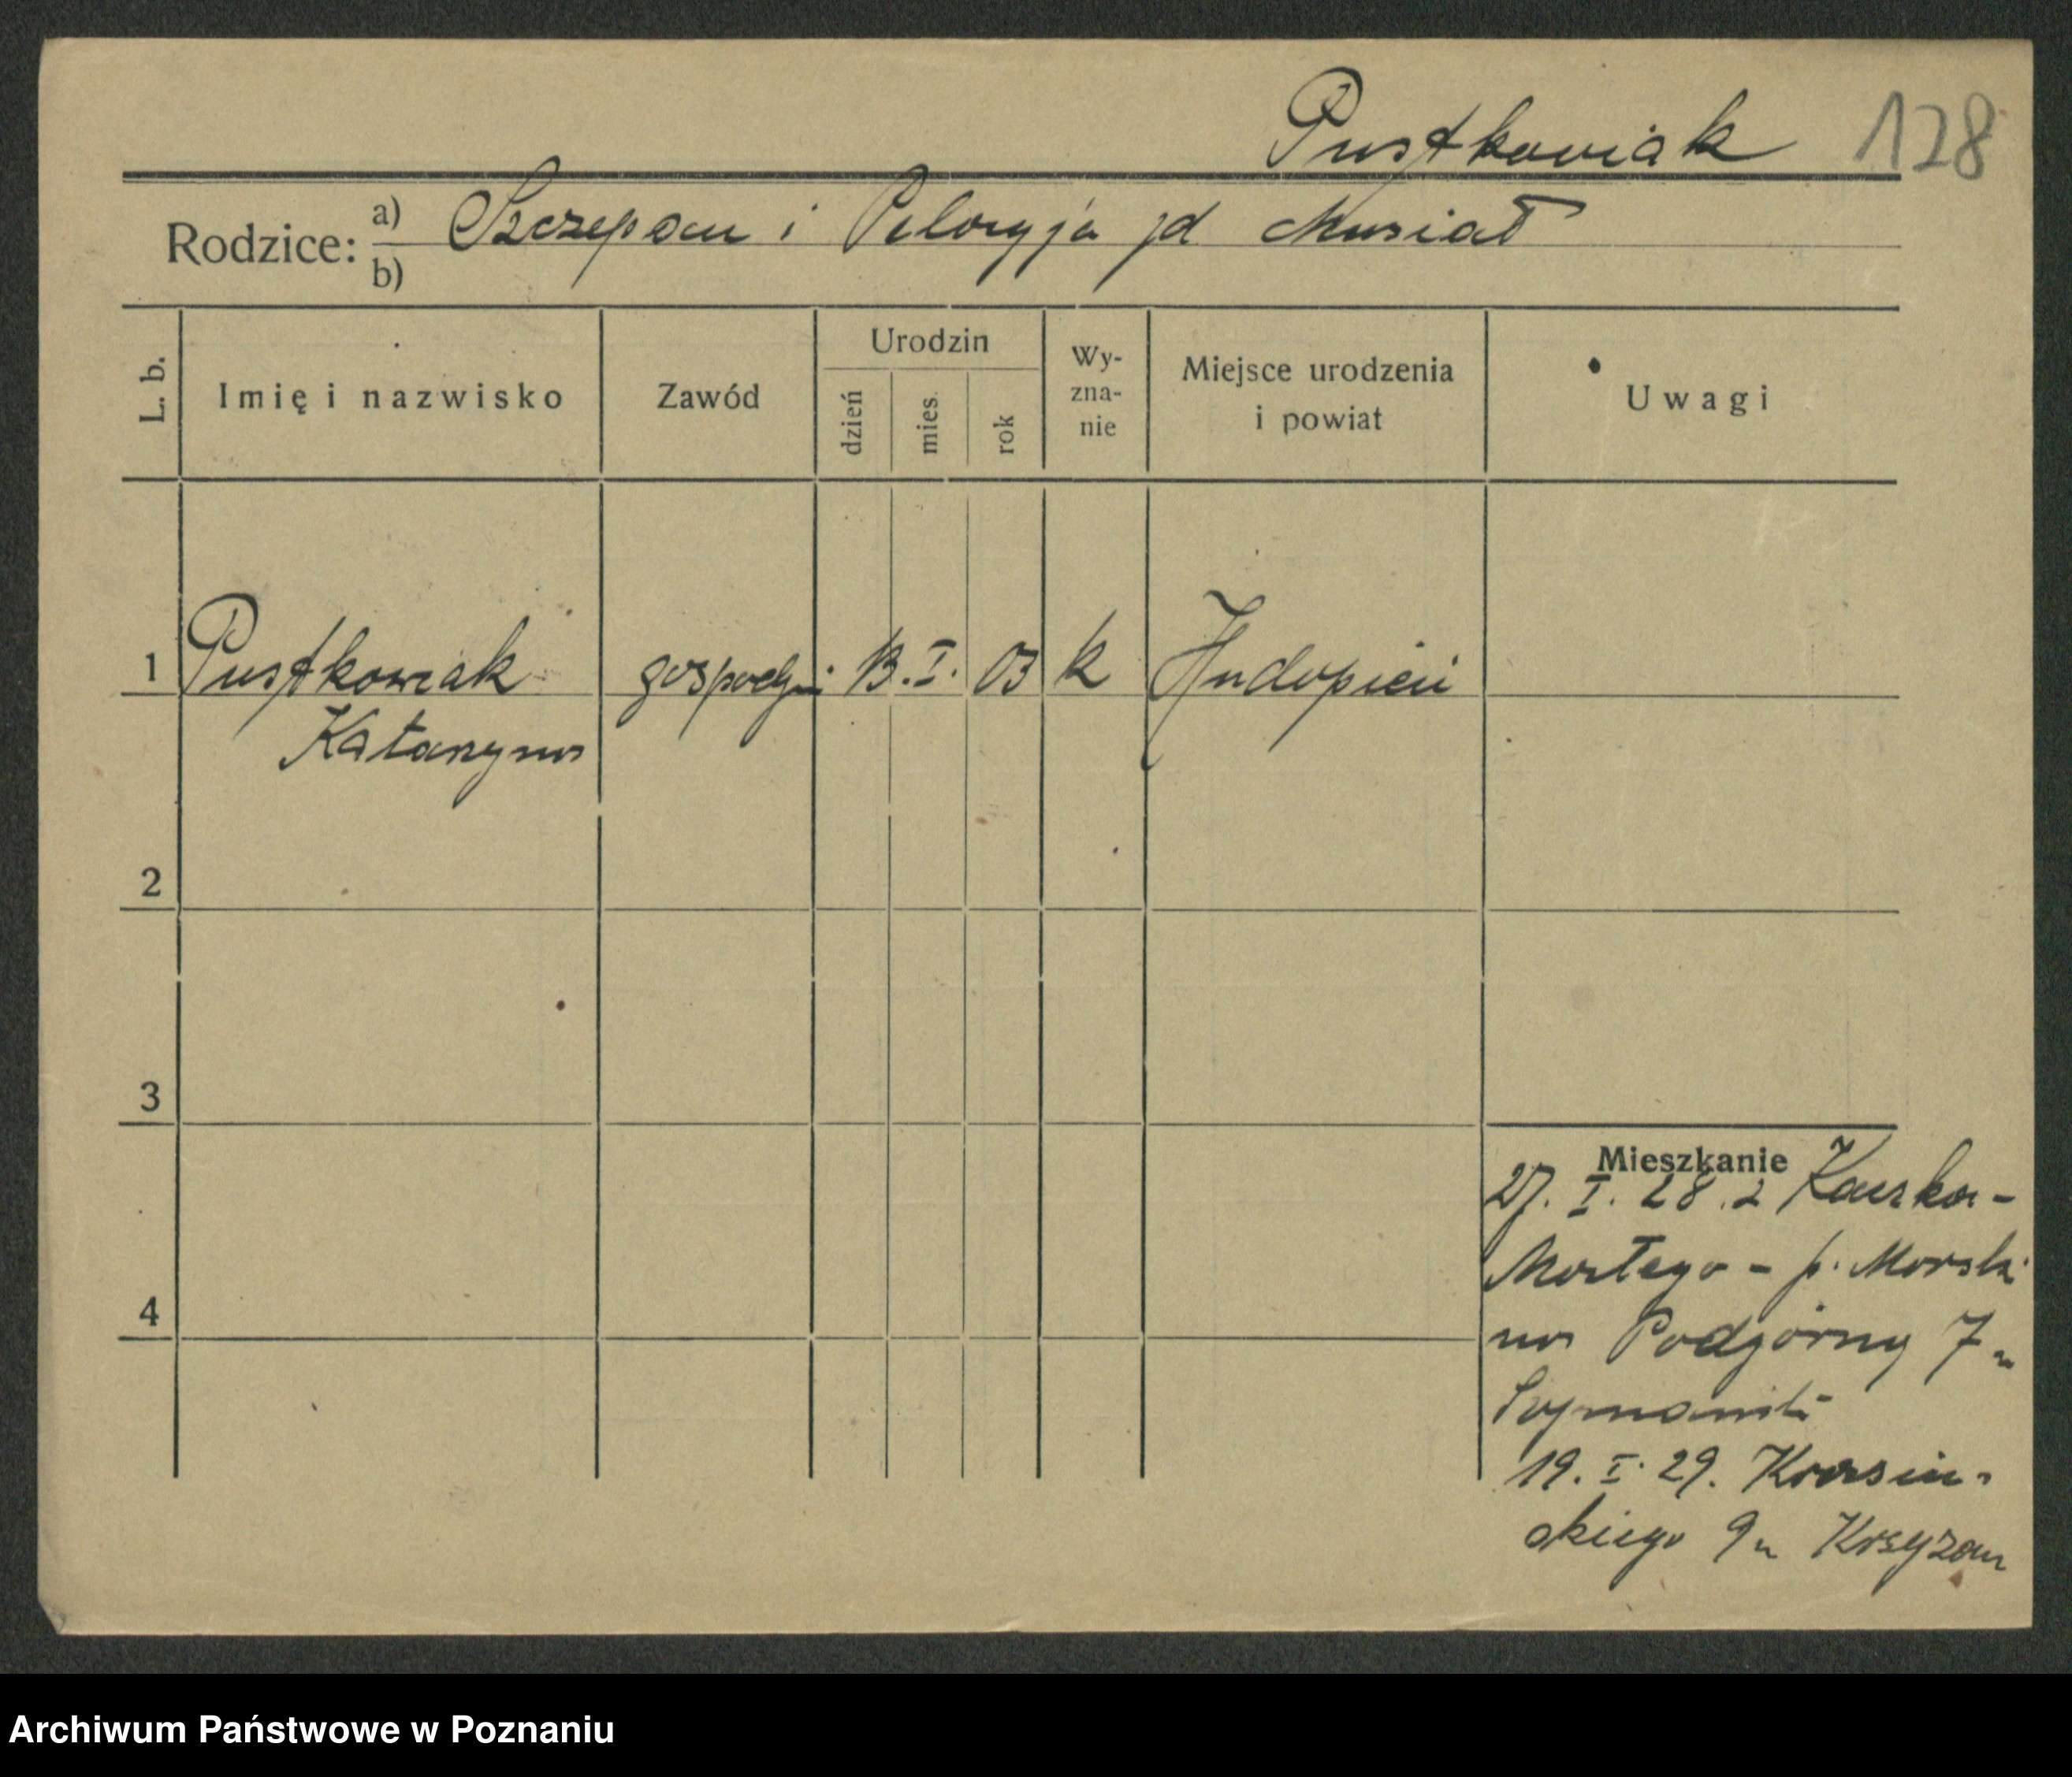 Pustkowiak 128
Rodzice: a) Szczepan i Pelagja zd Musiał
b)
L. b.
Imię i nazwisko
Zawód
Urodzin
dzień
mies.
rok
Wy-
zna-
nie
Miejsce urodzenia
i powiat
Uwagi
1 Pustkowiak gospodyni 13. I. 03 k
Katarzyna
2
3
4
Mieszkanie
27. I. 28 z
- p. Morski
na Podgórny 7 u
19. I. 29. Krasiń-
skiego 9 u Krzyżan
Archiwum Państwowe w Poznaniu